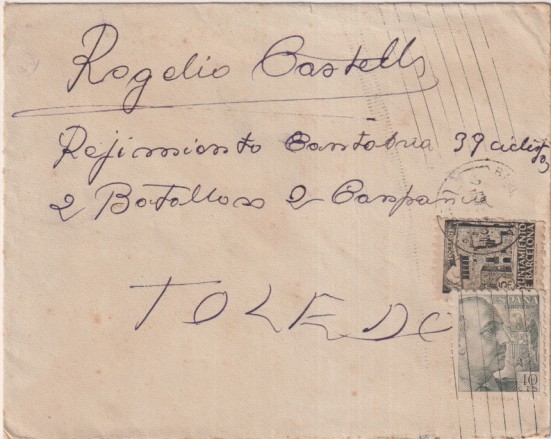 Rogelio Castells
Rejimiento Cantabria 39 ciclistas
2 Batallos 2 Conpania
TOLEDO
AYUNTAMIENTO
DE BARCELONA
5
40